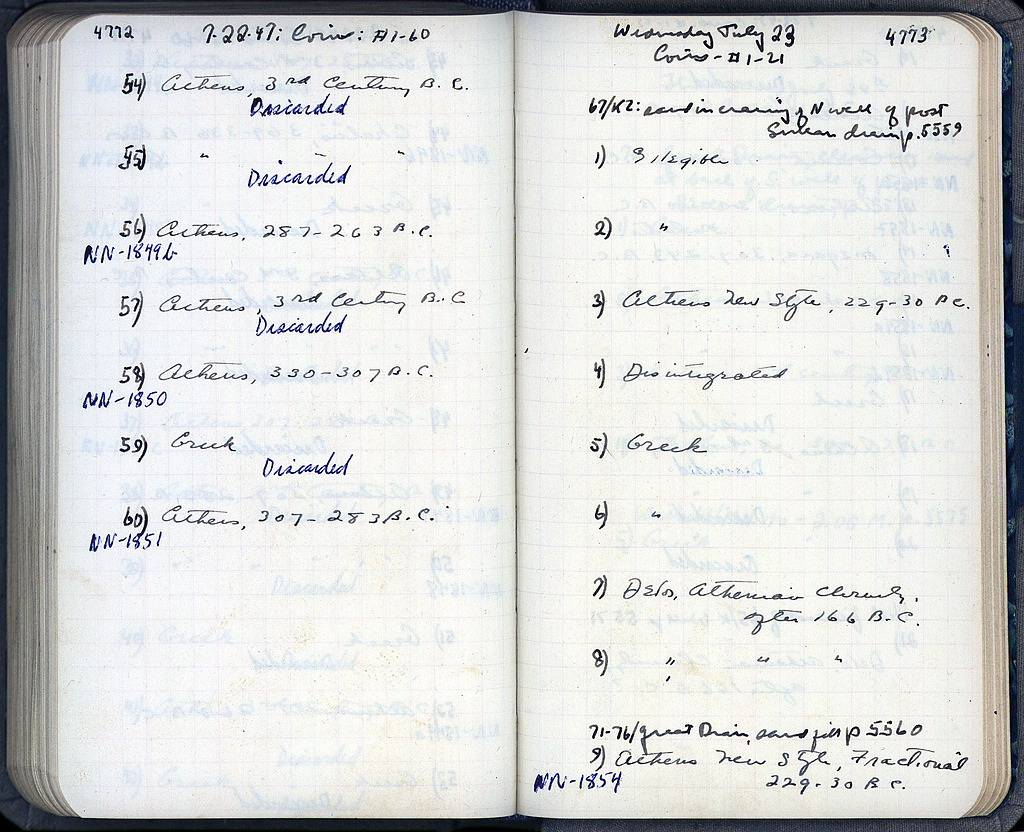 4772 7-22-47: Coins: #1-60
54) Athens, 3rd Century B.C.
Discarded
55) " " "
Discarded
56) Athens, 287-263 B.C.
NN-1849b
57) Athens, 3rd Century B.C
Discarded
58) Athens, 330-307 B.C.
NN-1850
59) Greek
Discarded
60) Athens, 307-283 B.C.
NN-1851
Wednesday July 23 4773
Coins - #1-21
67/KZ: sand in craning of N wall of post
Sullan drain p. 5559
1) Illegible
2) "
3) Athens New Style, 229-30 B.C.
4) Disintegrated
5) Greek
6) "
7) Delos, Athenian Cleruchy,
after 166 B.C.
8) " " "
71-76/ Great Drain, sand fill p 5560
9) Athens New Style, Fractional
NN-1854 229-30 B.C.